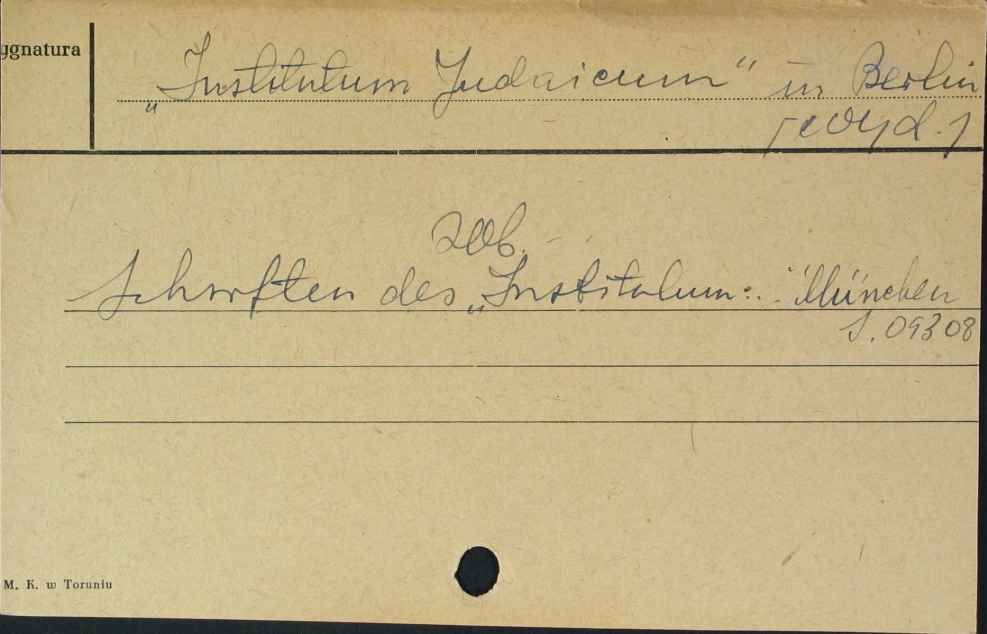 ygnatura
„Institutum Judaicum” in Berlin
[wyd.]
zob.
Schriften des „Institutum... München
S. 09308
M. K. w Toruniu